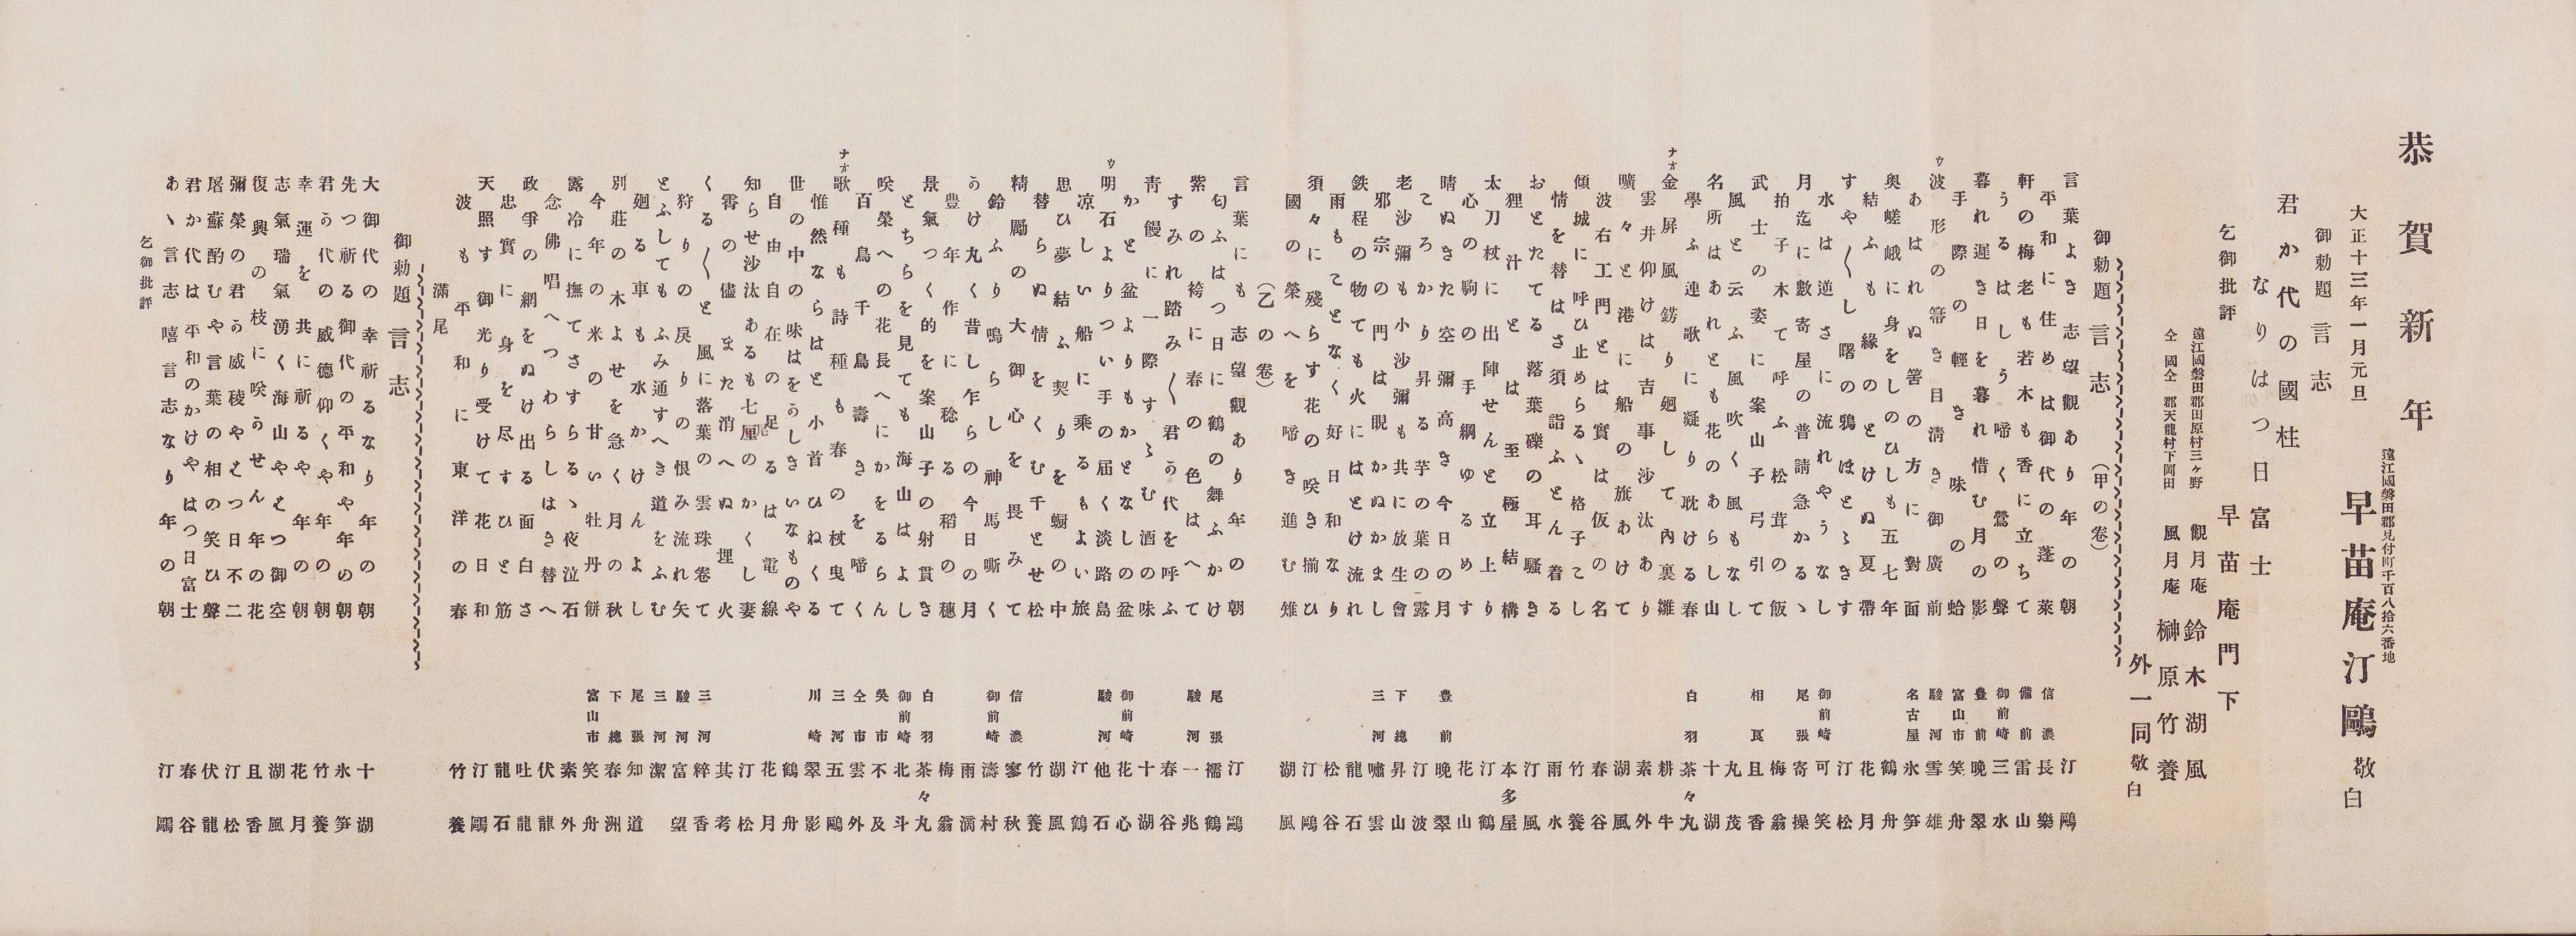 恭賀新年
遠江國磐田郡見付町千百八拾六番地
早苗庵汀鷗敬白
大正十三年一月元旦
御勅題 言志
君か代の國柱
なりはつ日富士
乞御批評
早苗庵門下
遠江國磐田郡田原村三ヶ野 観月庵 鈴木湖風
仝國仝郡天龍村下岡田 風月庵 榊原竹養
外一同敬白
御勅題 言志 (甲の卷)
言葉よき志望觀あり年の朝 汀鷗
平和に住めは御代の蓬萊 信濃 長樂
軒の梅老も若木も香に立ちて 備前 雷山
うるはしう啼く鶯の聲 御前崎 三水
暮れ遅き日を暮れ惜む月の影 豊前 晩翠
手際の輕き味の蛤 富山市 笑舟
ゥ 波形の箒き目淸き御廣前 駿河 雪雄
あはれぬ筈の方に對面 名古屋 氷笋
奥嵯峨に身をしのひしも五七年 鶴舟
結ふも緣のとけぬ夏帶 花月
すや〱し曙の鴉ほとゝきす 汀松
水は逆さに流れやうなし 御前崎 可笑
月迄に數寄屋の普請急かるゝ 尾張 寄操
拍子木て呼ふ松茸の飯 梅翁
武士の姿に案山子弓引て 相良 且香
風と云ふ風吹く風もなし 丸茂
名所はあれとも花のあらし山 十湖
學ふ連歌に凝り耽ける春 白羽 茶々丸
ナォ 金屏風錺り廻して內裏雛 耕牛
雲井仰けは吉事沙汰あり 素外
曠々と港に船の旗あけて 湖風
波右工門とは實は仮の名 春谷
傾城に呼ひ止めらるゝ格子こし 竹養
情を替はさ須詣ふとん着る 雨水
おとたてる落葉礫の耳騷き 汀風
狸汁とは至極結構 本多屋
太刀杖に出陣せんと立上り 汀鶴
心の駒の手綱ゆるめす 花山
晴ぬきた空彌高き今日の月 豊前 晩翠
ころかり昇る芋の葉の露 汀波
老沙彌も小沙彌も共に放生會 下總 昇山
邪宗の門は眤かぬかまし 三河 嘯雲
鉄程の物ても火にはとけ流れ 龍石
雨もことなく好日和なり 松谷
須々に殘らす花の咲き揃ひ 汀鷗
國の榮へを啼き進む雉 湖風
(乙の卷)
言葉にも志望觀あり年の朝 汀鷗
匂ふはつ日に鶴の舞ふかけ 尾張 襦鶴
紫の袴に春の色はへて 駿河 一兆
すみれ踏み〱君う代を呼ふ 春谷
靑饅に一際すゝむ酒の味 十湖
かと盆よりもかとなしの盆 御前崎 花心
ゥ 明石よりつい手の届く淡路島 駿河 他石
凉しい船に乘るもよい旅 汀鶴
思ひ夢結ふ契りを蝈の中 湖風
替らぬ情をくむ千とせ松 竹養
精勵の大御心を畏みて 信濃 寥秋
鈴ふり鳴らし神馬嘶く 御前崎 濤村
うけ九く昔し乍らの今日の月 雨滴
豊年作に稔る稻の穗 梅翁
景氣つく的を案山子の射貫き 白羽 茶々丸
とちらを見ても海山はよし 御前崎 北斗
咲榮への花長へにかをるらん 吳市 不及
百鳥千鳥壽きを啼く 仝市 雲外
ナォ 歌種も詩種も春の杖曳て 三河 五鷗
惟然ならはと小首ひねくる 川崎 翠影
世の中の味はをうしきいなものや 鶴舟
自由自在の足るは電線 花月
知らせ沙汰あるも七厘のかくし妻 汀松
霄の儘また消へぬ埋火 其考
くる〱と風に落葉の雲珠卷て 三河 粹香
狩りの戾りの恨み流れ矢 駿河 富望
とふしてもふみ通すへき道をふむ 三河 潔
廻る車も水かけんよし 尾張 知道
別莊の木よせを急く月の秋 下總 春洲
今年の米の甘い牡丹餅 富山市 笑舟
露冷に撫てさすらるゝ夜泣石 素外
念佛唱へつわらしはき替へ 伏龍
政爭の綱をぬけ出る面白さ 吐龍
忠實に身を尽すひと筋 龍石
天照す御光り受けて花日和 汀鷗
波も平和に東洋の春 竹養
滿尾
御勅題 言志
大御代の幸祈るなり年の朝 十湖
先つ祈る御代の平和や年の朝 氷笋
君う代の威德仰くや年の朝 竹養
幸運を共に祈るや年の朝 花月
志氣瑞氣湧く海山やはつ御空 湖風
復興の枝に咲うせん年の花 且香
彌榮の君う威稜やはつ日不二 汀松
屠蘇酌むや言葉の相の笑ひ聲 伏龍
君か代は平和のかけやはつ日富士 春谷
あゝ言志嘻言志なり年の朝 汀鷗
乞御批評